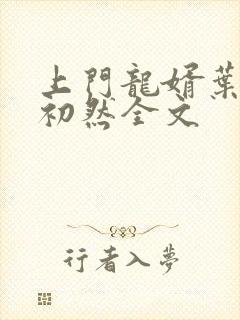 上門龍婿葉
初然全文
行者入夢